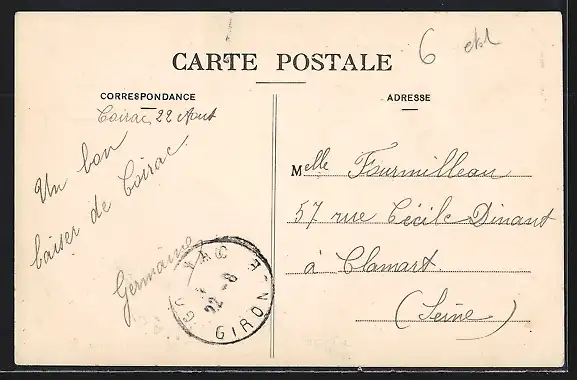 6
CARTE POSTALE
CORRESPONDANCE
Coirac, 22 Aout
Un bon
baiser de Coirac.
Germaine
22-8
GIRONDE
ADRESSE
Melle Fourmilleau
57 rue Cécile Dinant
à Clamart.
(Seine)